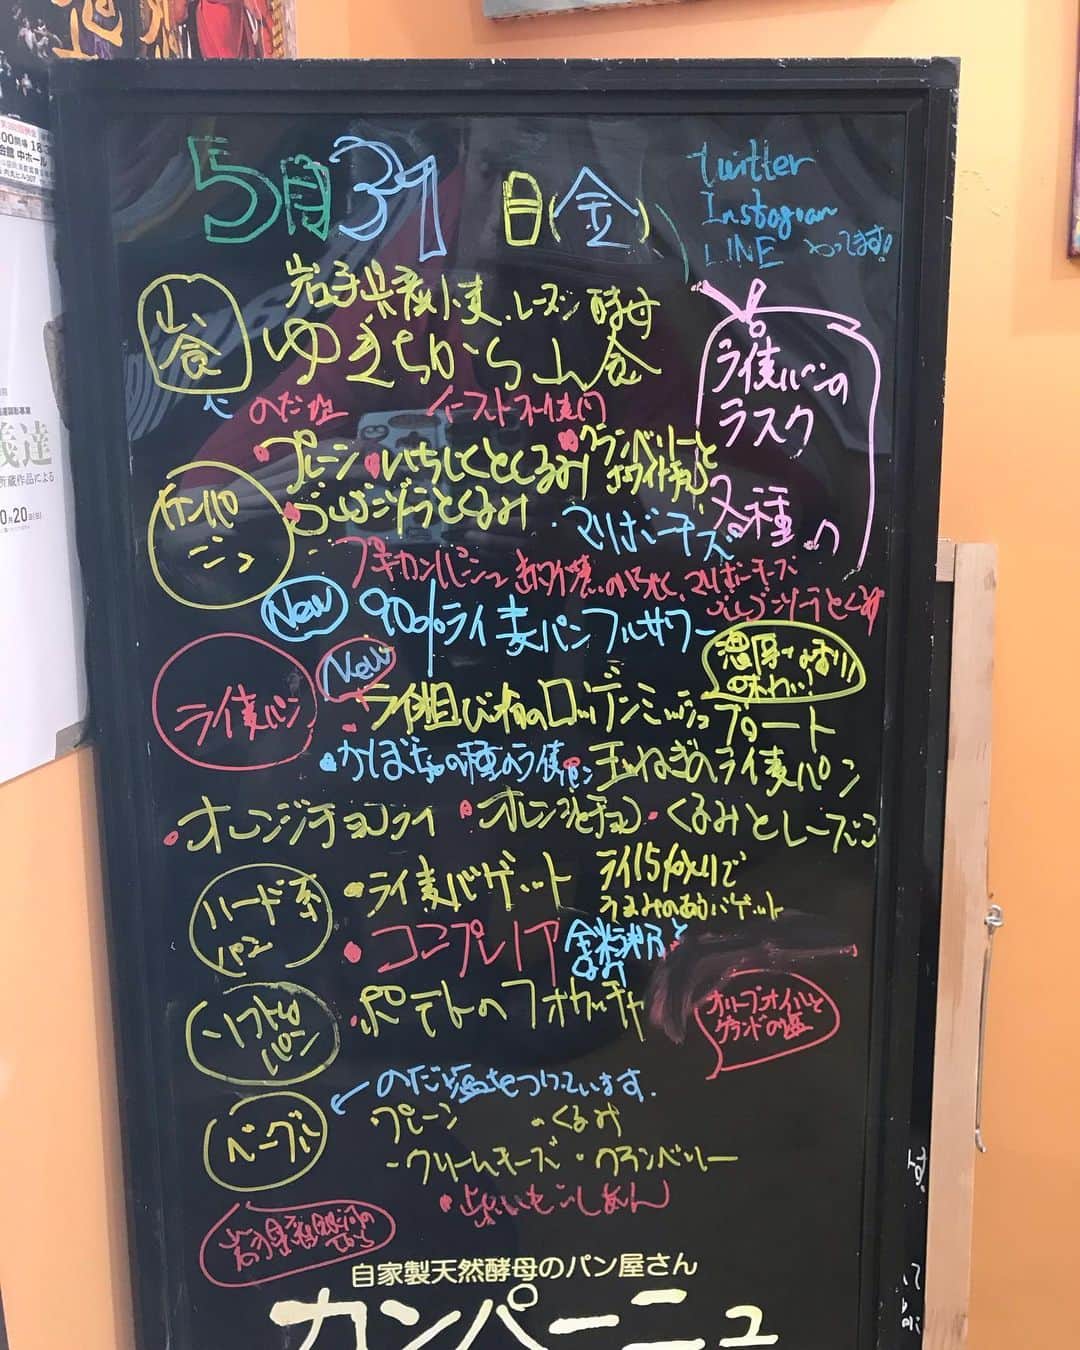 5月31日(金)
twitter
Instagram
LINE やってます!
山食
岩手県産小麦、レーズン酵母
ゆきちから山食
のだ塩 イースト不使用
ライ麦パンの
ラスク
各種
カンパーニュ
・プレーン・いちじくとくるみ・クランベリーとホワイトチョコ
・ゴルゴンゾーラとくるみ・マリボーチーズ
プチカンパーニュ マリボーチーズ
ゴルゴンゾーラとくるみ
New 90%ライ麦パンフルサワー
濃厚な香り!
味わい!
ライ麦パン
New
・ライ粗びき粉のロッゲンミッシュブロート
・かぼちゃの種のライ麦パン・玉ねぎのライ麦パン
・オレンジチョコライ・オレンジとチョコ・くるみとレーズン
ハード系パン
・ライ麦バゲット ライ15%入りで
うまみのあるバゲット
・コンプレノア 全粒粉と
ソフトなパン
・ポテトのフォカッチャ
オリーブオイルと
ゲランドの塩
のだ塩をつけています。
ベーグル
プレーン ・くるみ
・クリームチーズ・クランベリー
・紫いもこしあん
岩手県産銀河のちから
自家製天然酵母のパン屋さん
カンパーニュ
義達
所蔵作品による
0月20日(日)
会館 中ホール